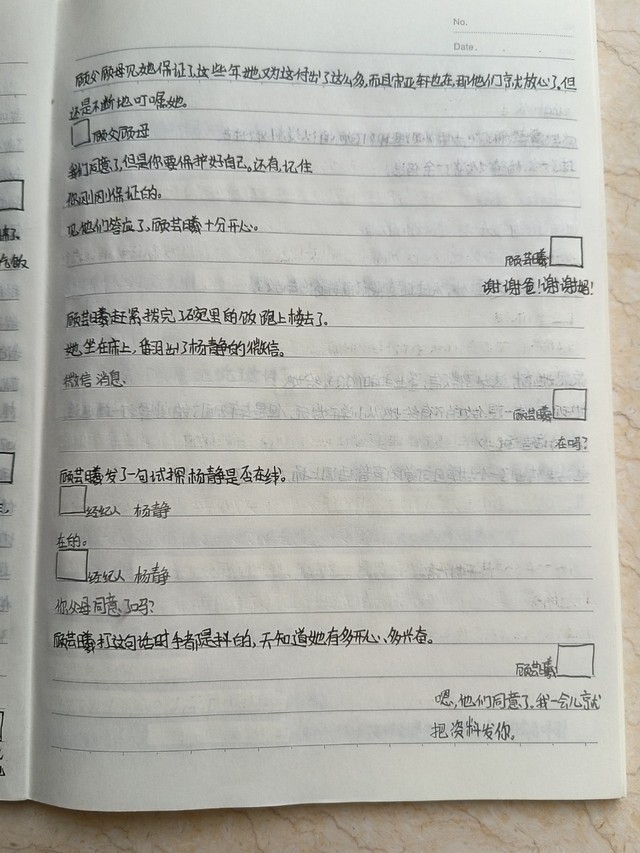 No.
Date.
顾父顾母见她保证了,这些年她又为这付出了这么多,而且宋亚轩也在,那他们就放心了,但
还是不断地叮嘱她。
顾父顾母
我们同意了,但是你要保护好自己。还有,记住
你刚刚保证的。
见他们答应了,顾芸曦十分开心。
顾芸曦
谢谢爸!谢谢妈!
顾芸曦赶紧拨完了碗里的饭跑上楼去了。
她坐在床上,翻出了杨静的微信。
微信消息、
顾芸曦
在吗?
顾芸曦发了一句试探杨静是否在线。
经纪人 杨静
在的。
经纪人 杨静
你父母同意了吗?
顾芸曦打这句话时手都是抖的,天知道她有多开心、多兴奋。
顾芸曦
嗯,他们同意了。我一会儿就
把资料发你。